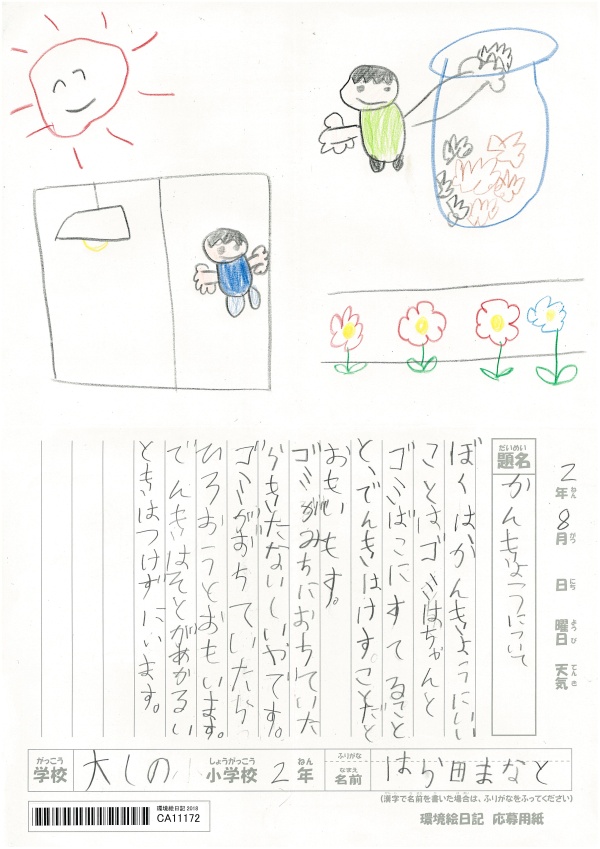 2年8月 日 曜日 天気
ねん がつ にち ようび てんき
だいめい
題名
かんきょうについて
ぼくはかんきょうにいい
ことは、ゴミはちゃんと
ゴミばこにすてること
と、でんきはけすことだと
おもいます。
ゴミがみちにおちていた
らきたないしいやです。
ゴミがおちていたらっ
ひろおうとおもいます。
でんきはそとがあかるい
ときはつけずにいます。
がっこう しょうがっこう ねん ふりがな
学校 大しの 小学校 2年 なまえ 名前 はら田まなと
(漢字で名前を書いた場合は、ふりがなをふってください)
環境絵日記 2018
CA11172
環境絵日記 応募用紙